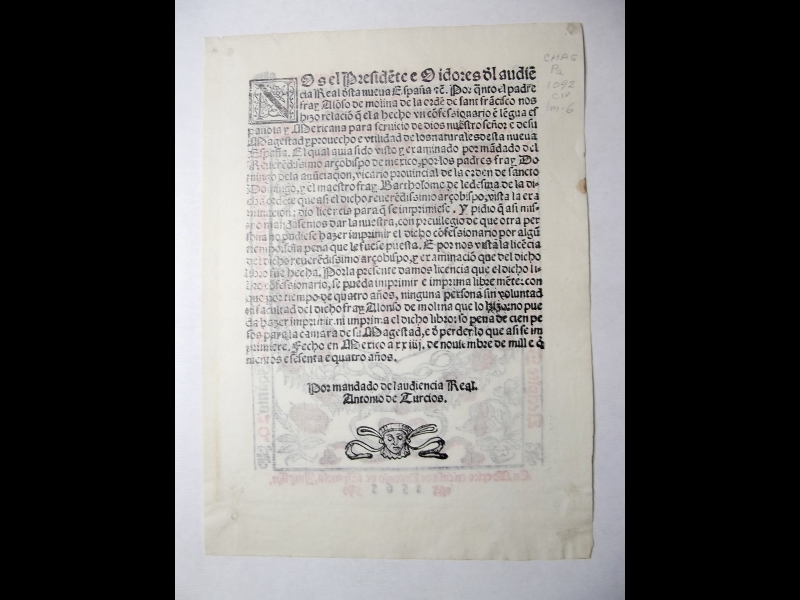 NOs el Presidẽte e Oidores ðl audiẽ
cia Real ðsta nueua España ⁊c̃. Por q̃nto el padre
fray Alõso de molina de la ordẽ de sant frãcisco nos
hizo relaciõ q̃ el a hecho vn cõfessionario ẽ lẽgua es
pañola y Mexicana para seruicio de dios nuestro señor e de su
Magestad y prouecho e vtilidad de los naturales desta nueua
España. El qual auia sido visto y examinado por mãdado del
Reuerẽdissimo arçobispo de mexico, por los padres fray Do
mingo de la anũciacion, vicario prouincial de la orden de sancto
Domingo, y el maestro fray Bartholome de ledesma de la di
cha ordẽ e que assi el dicho reuerẽdissimo arçobispo, vista la exa
minacion: dio licẽcia para q̃ se imprimiese. Y pidio q̃ assi mis
mo mandasemos dar la nuestra, con preuillegio de que otra per
sona no pudiese hazer imprimir el dicho cõfessionario por algũ
tiempo, so la pena que le fuese puesta. E por nos vista la licẽcia
del dicho reuerẽdissimo arçobispo, y examinaciõ que del dicho
libro fue hecha. Por la presente damos licencia que el dicho li
bro cõfessionario, se pueda imprimir e imprima libre mẽte: con
que por tiempo de quatro años, ninguna persona sin voluntad
ni facultad del dicho fray Alonso de molina que lo hizo no pue
da hazer imprimir ni imprima el dicho libro: so pena de cien pe
sos para la camara de su Magestad, e ð perder lo que assi se im
primiere. Fecho en Mexico a xxiiij. de nouiembre de mill e q̃
nientos e sesenta e quatro años.
Por mandado de la audiencia Real.
Antonio de Turcios.
CMAG
Pa
1092
CIV
Im-6
1565